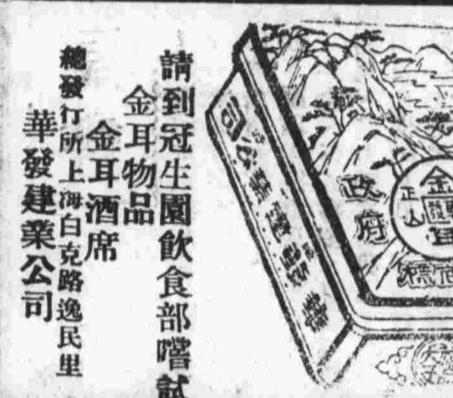 請到冠生園飲食部嚐試
金耳物品
金耳酒席
總發行所上海白克路逸民里
華發建業公司
政府
金
正山